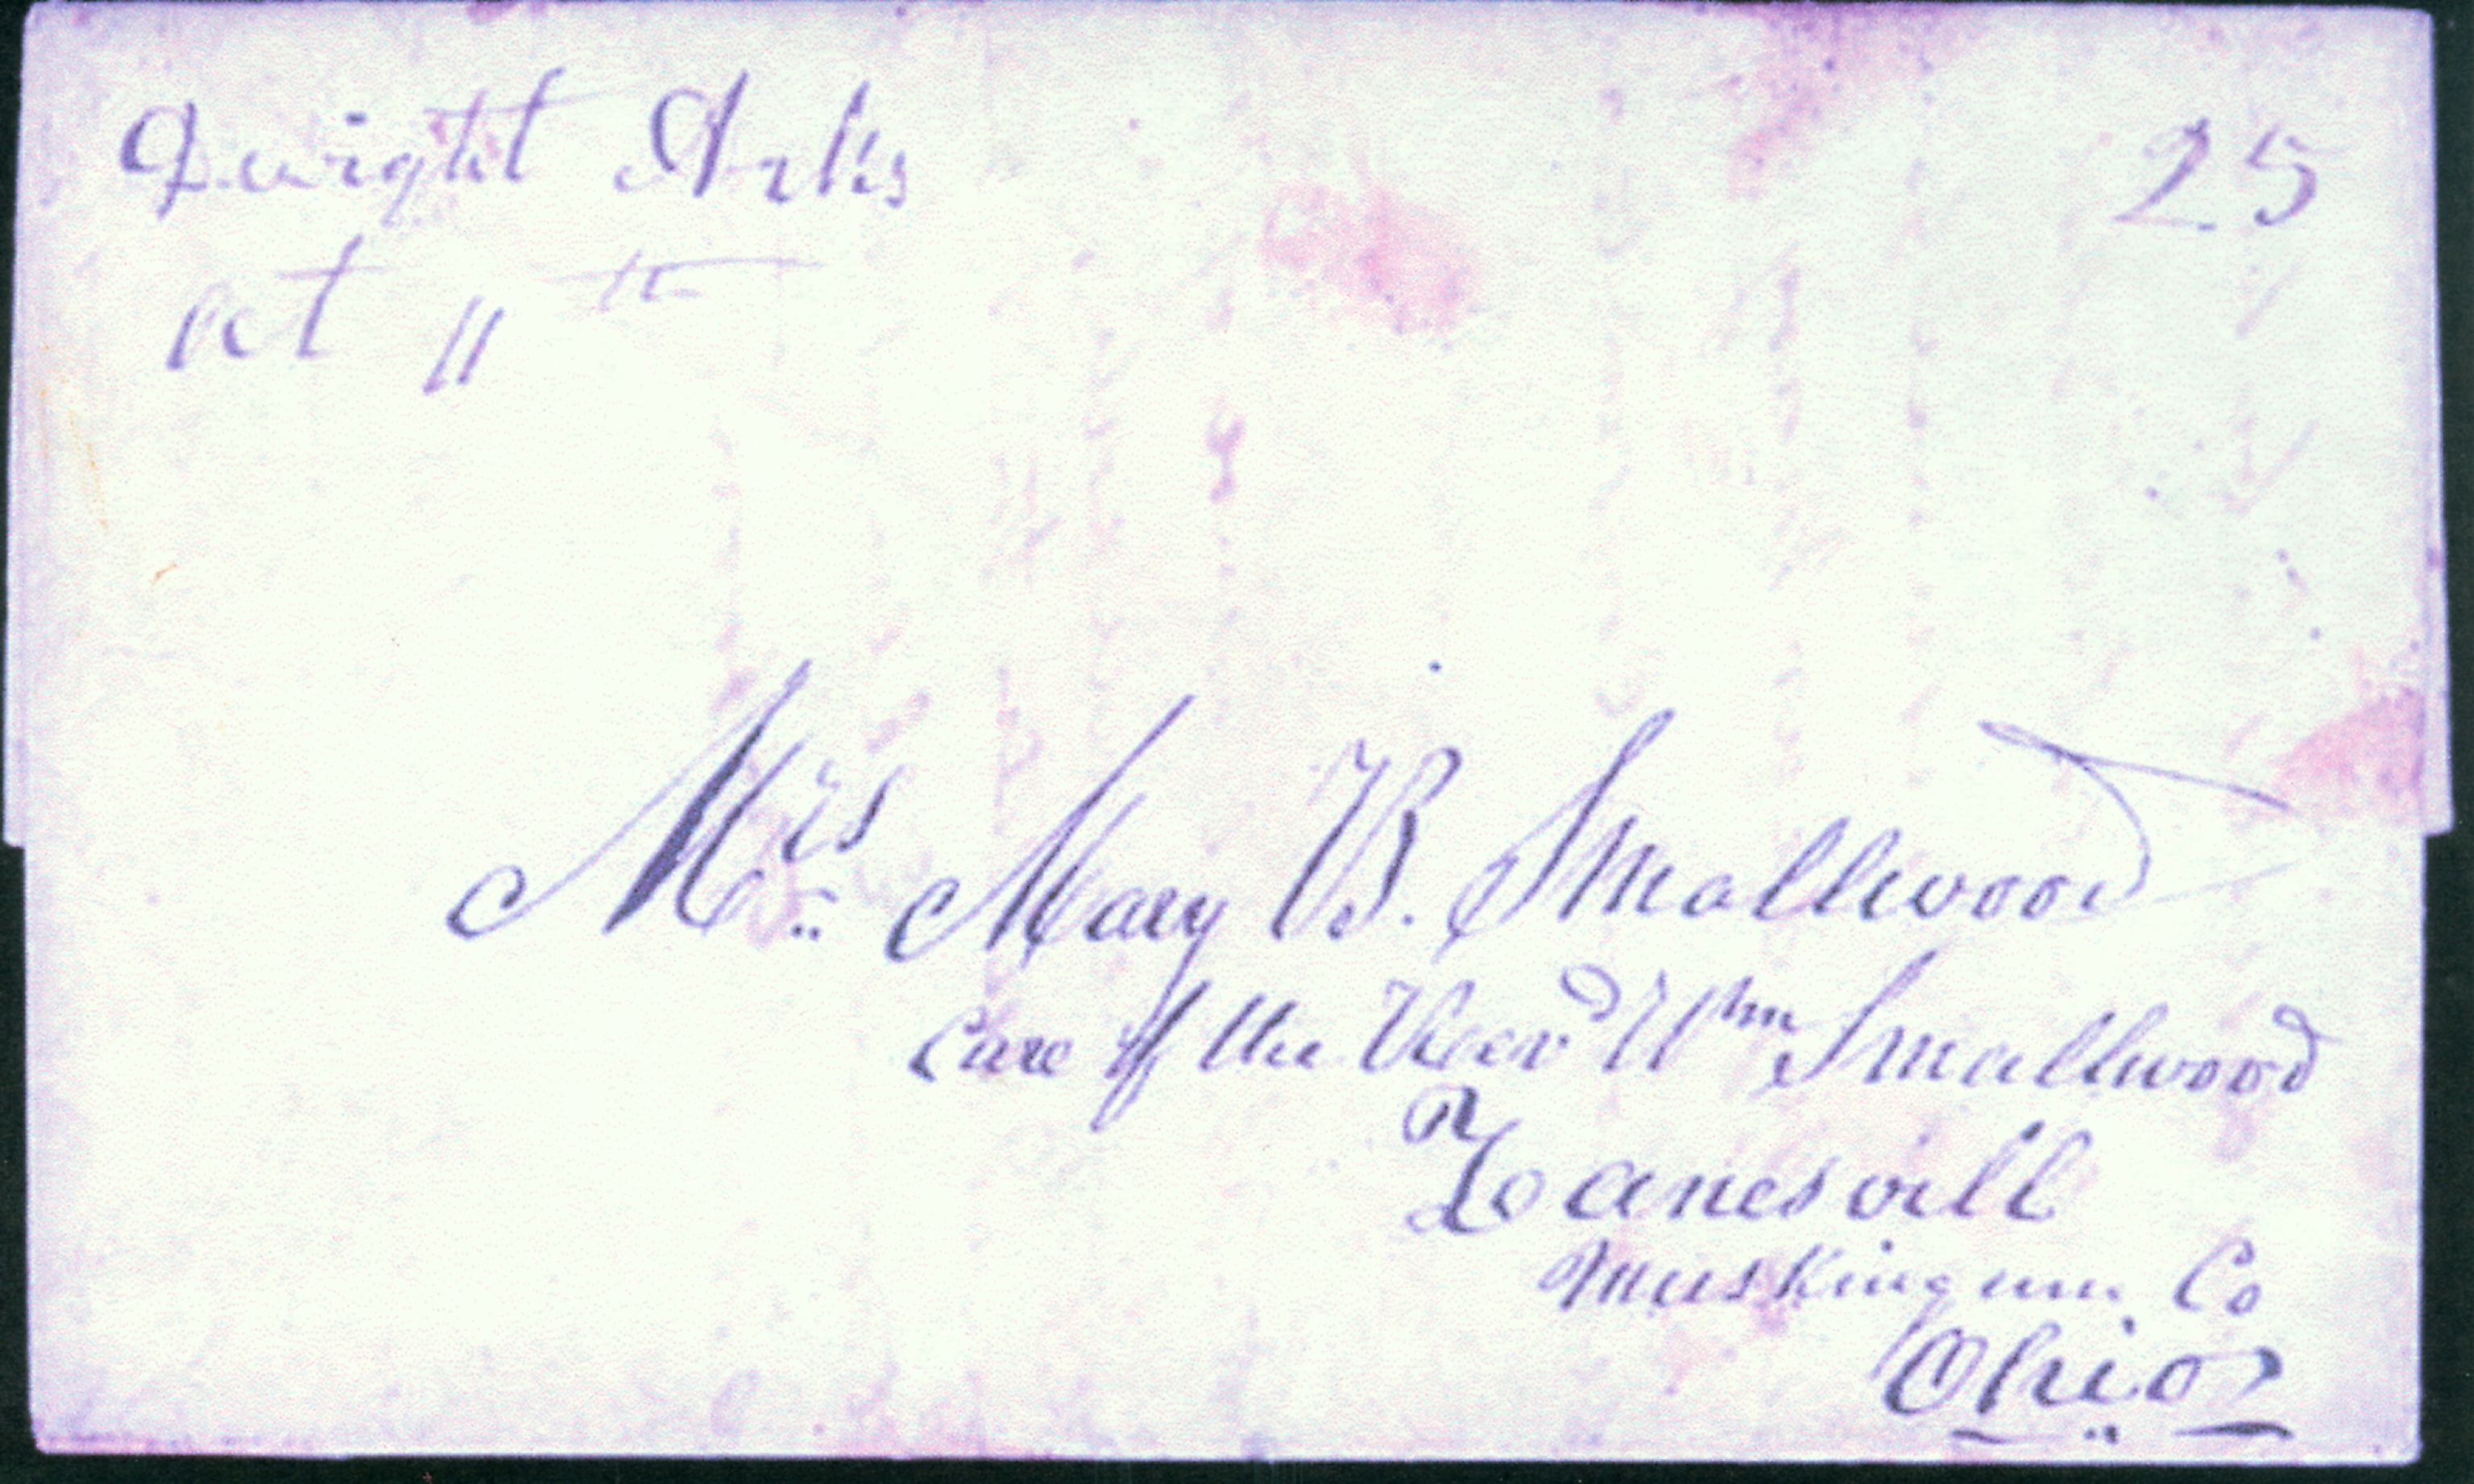 Dwight Arks
25
Oct 11th
Mrs Mary B. Smallwood
Care of the Revd Wm Smallwood
Zanesvill
Muskingum Co
Ohio